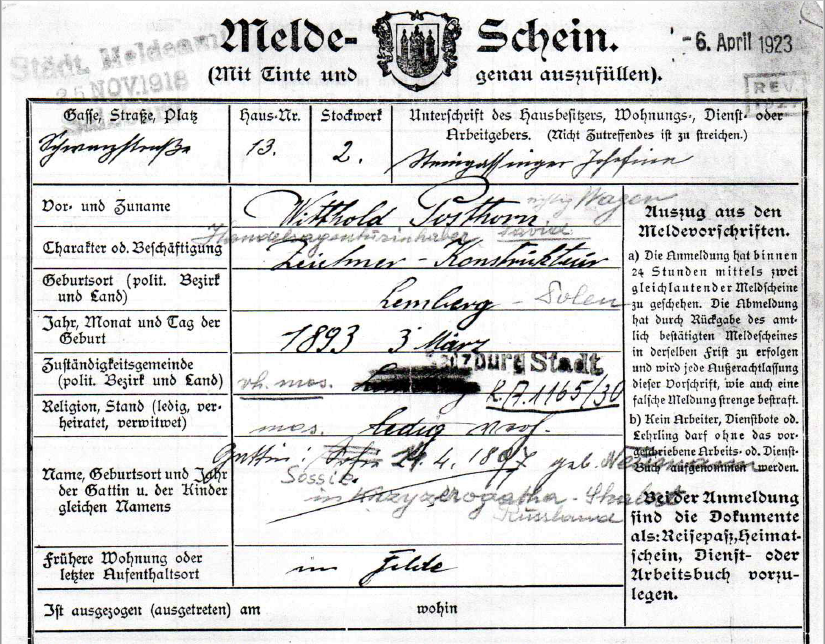 Melde-Schein.
(Mit Tinte und genau auszufüllen).
Städt. Meldeamt
25 NOV. 1918
-6. April 1923
REV.
Gasse, Straße, Platz
Haus-Nr.
Stockwerk
Unterschrift des Hausbesitzers, Wohnungs-, Dienst- oder
Arbeitgebers. (Nicht Zutreffendes ist zu streichen.)
Schwarzstraße
13.
2.
Josefine
Vor- und Zuname
Witthold Posthorn
Wagen
Charakter od. Beschäftigung
Handelsagenturinhaber
Zeichner - Konstrukteur
Geburtsort (polit. Bezirk
und Land)
Lemberg - Polen
Jahr, Monat und Tag der
Geburt
1893 3 März
Zuständigkeitsgemeinde
(polit. Bezirk und Land)
Salzburg Stadt
vh. mos.
1165/30
Religion, Stand (ledig, ver-
heiratet, verwitwet)
mos. ledig verh.
Name, Geburtsort und Jahr
der Gattin u. der Kinder
gleichen Namens
Gattin: 4. 1897 geb.
in
Russland
Frühere Wohnung oder
letzter Aufenthaltsort
im Felde
Ist ausgezogen (ausgetreten) am wohin
Auszug aus den
Meldevorschriften.
a) Die Anmeldung hat binnen
24 Stunden mittels zwei
gleichlautender Meldscheine
zu geschehen. Die Abmeldung
hat durch Rückgabe des amt-
lich bestätigten Meldescheines
in derselben Frist zu erfolgen
und wird jede Außerachtlassung
dieser Vorschrift, wie auch eine
falsche Meldung strenge bestraft.
b) Kein Arbeiter, Dienstbote od.
Lehrling darf ohne das vor-
geschriebene Arbeits- od. Dienst-
Buch aufgenommen werden.
Bei der Anmeldung
sind die Dokumente
als: Reisepaß, Heimat-
schein, Dienst- oder
Arbeitsbuch vorzu-
legen.